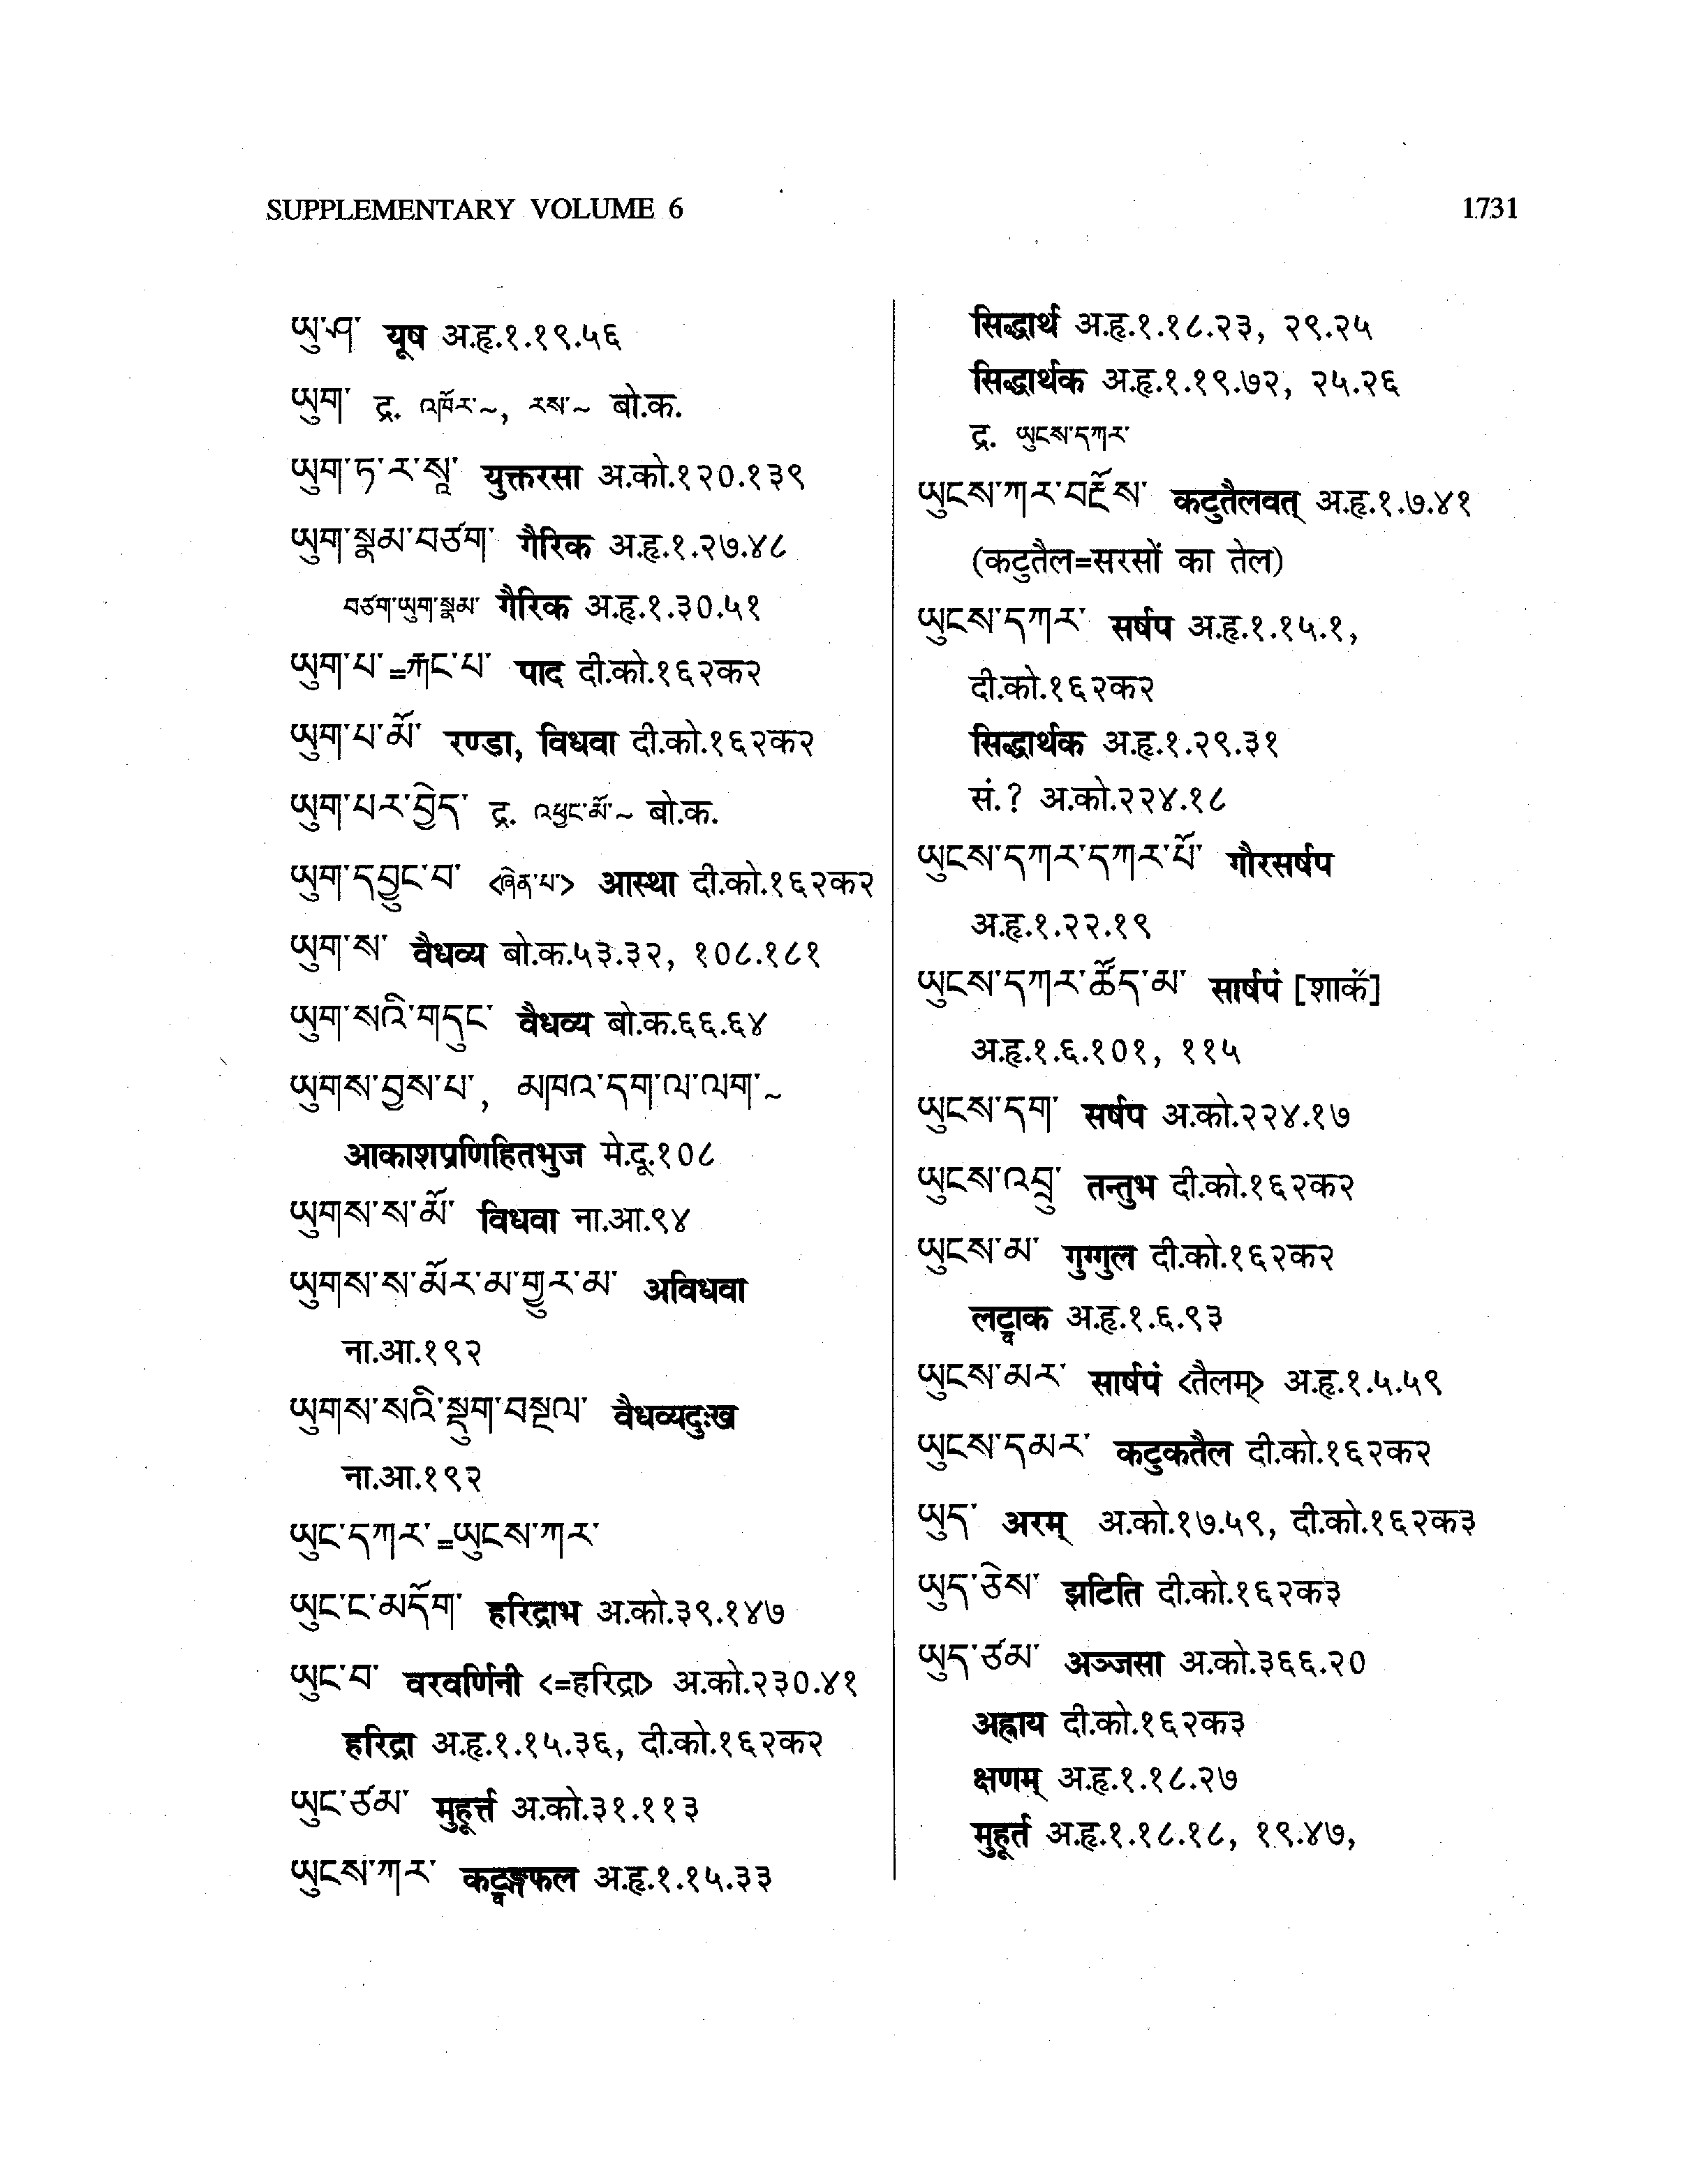 SUPPLEMENTARY VOLUME 6
1731
ཡུ་ཤ་ यूष अ.हृ.१.१९.५६
ཡུག་ द्र. འཁོར་~, རས་~ बो.क.
ཡུག་ཏ་ར་སཱ་ युक्तरसा अ.को.१२०.१३९
ཡུག་སྣམ་བཙག་ गैरिक अ.हृ.१.२७.४८
བཙག་ཡུག་སྣམ་ गैरिक अ.हृ.१.३०.५१
ཡུག་པ་=རྐང་པ་ पाद दी.को.१६२क२
ཡུག་པ་མོ་ रण्डा, विधवा दी.को.१६२क२
ཡུག་པར་བྱེད་ द्र. འཕྱང་མོ་~ बो.क.
ཡུག་དབྱུང་བ་ <ཞེན་པ་> आस्था दी.को.१६२क२
ཡུག་ས་ वैधव्य बो.क.५३.३२, १०८.१८१
ཡུག་སའི་གདུང་ वैधव्य बो.क.६६.६४
ཡུགས་བྱས་པ་, མཁའ་དག་ལ་ལག་~
आकाशप्रणिहितभुज मे.दू.१०८
ཡུགས་ས་མོ་ विधवा ना.आ.९४
ཡུགས་ས་མོར་མ་གྱུར་མ་ अविधवा
ना.आ.१९२
ཡུགས་སའི་སྡུག་བསྔལ་ वैधव्यदुःख
ना.आ.१९२
ཡུང་དཀར་=ཡུངས་ཀར་
ཡུང་ང་མདོག་ हरिद्राभ अ.को.३९.१४७
ཡུང་བ་ वरवर्णिनी <=हरिद्रा> अ.को.२३०.४१
हरिद्रा अ.हृ.१.१५.३६, दी.को.१६२क२
ཡུང་ཙམ་ मुहूर्त्त अ.को.३१.११३
ཡུངས་ཀར་ कट्वङ्गफल अ.हृ.१.१५.३३
सिद्धार्थ अ.हृ.१.१८.२३, २९.२५
सिद्धार्थक अ.हृ.१.१९.७२, २५.२६
द्र. ཡུངས་དཀར་
ཡུངས་ཀར་བརྔོས་ कटुतैलवत् अ.हृ.१.७.४१
(कटुतैल=सरसों का तेल)
ཡུངས་དཀར་ सर्षप अ.हृ.१.१५.१,
दी.को.१६२क२
सिद्धार्थक अ.हृ.१.२९.३१
सं.? अ.को.२२४.१८
ཡུངས་དཀར་དཀར་པོ་ गौरसर्षप
अ.हृ.१.२२.१९
ཡུངས་དཀར་ཚོད་མ་ सार्षपं [शाकं]
अ.हृ.१.६.१०१, ११५
ཡུངས་དག་ सर्षप अ.को.२२४.१७
ཡུངས་འབྲུ་ तन्तुभ दी.को.१६२क२
ཡུངས་མ་ गुग्गुल दी.को.१६२क२
लट्वाक अ.हृ.१.६.९३
ཡུངས་མར་ सार्षपं <तैलम्> अ.हृ.१.५.५९
ཡུངས་དམར་ कटुकतैल दी.को.१६२क२
ཡུད་ अरम् अ.को.१७.५९, दी.को.१६२क३
ཡུད་ཅེས་ झटिति दी.को.१६२क३
ཡུད་ཙམ་ अञ्जसा अ.को.३६६.२०
अह्नाय दी.को.१६२क३
क्षणम् अ.हृ.१.१८.२७
मुहूर्त अ.हृ.१.१८.१८, १९.४७,